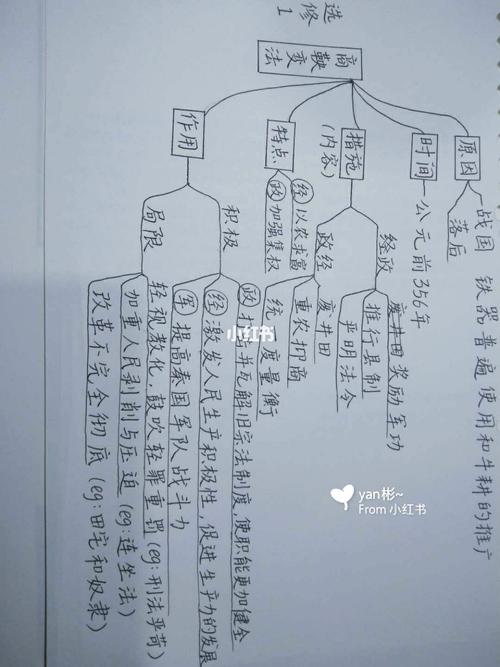 选修1
商鞅变法
原因
战国 铁器普遍使用和牛耕的推广
落后
时间 公元前356年
措施
(内容)
经政
废井田 奖励军功
推行县制
严明法令
政经
废井田
重农抑商
统一度量衡
特点
经 以农求富
政 加强集权
作用
积极
政 打击并瓦解旧宗法制度,使职能更加健全
经 激发人民生产积极性,促进生产力的发展
军 提高秦国军队战斗力
局限
轻视教化,鼓吹轻罪重罚(eg:刑法严苛)
加重人民剥削与压迫(eg:连坐法)
改革不完全彻底(eg:田宅和奴隶)
小红书
yan彬~
From 小红书